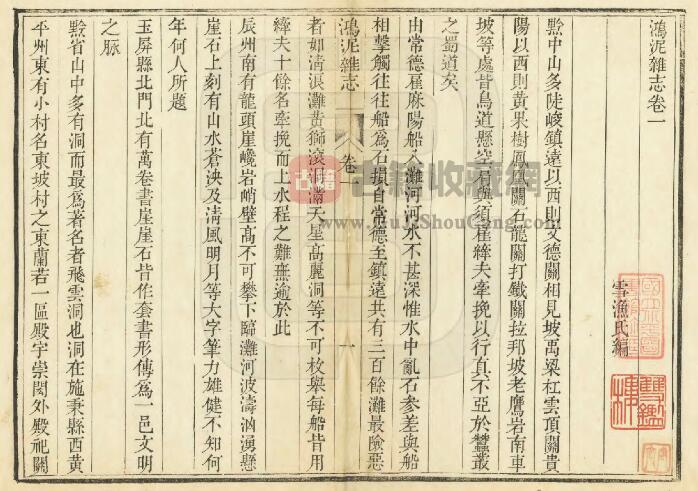 鴻泥雜志卷一
雪漁氏編
黔中山多陡峻鎮遠以西則文德關相見坡禹梁杠雲頂關貴
陽以西則黃果樹鳳凰關石龍關打鐵關拉邦坡老鷹岩南車
坡等處皆鳥道懸空肩輿須雇縴夫牽挽以行真不亞於蠶叢
之蜀道矣
由常德雇麻陽船入灘河河水不甚深惟水中亂石參差與船
相擊觸往往船為石損自常德至鎮遠共有三百餘灘最險惡
鴻泥雜志
卷一
一
者如淸浪灘黃獅滾洞滿天星高麗洞等不可枚舉每船皆用
縴夫十餘名牽挽而上水程之難無逾於此
辰州南有龍頭崖巉岩峭壁高不可攀下臨灘河波濤洶湧懸
崖石上刻有山水蒼泱及淸風明月等大字筆力雄健不知何
年何人所題
玉屏縣北門北有萬卷書崖崖石皆作套書形傳為一邑文明
之脉
黔省山中多有洞而最為著名者飛雲洞也洞在施秉縣西黃
平州東有小村名東坡村之東蘭若一區殿宇崇閎外殿祀關
古籍
古籍收藏網
www.GuJiShouCang.com